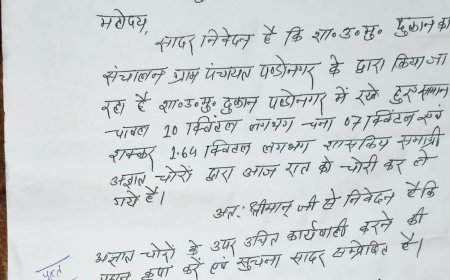 महोदय,
सादर निवेदन है कि शा०उ०मु० दुकान का
संचालन ग्राम पंचायत पण्डोनगर के द्वारा किया जा
रहा है शा०उ०मु० दुकान पण्डोनगर में रखे हुए समान
चावल 10 क्विंटल लगभग चना 07 क्विंटल एवं
शक्कर 1.64 क्विंटल लगभग शासकिय समाग्री
अज्ञात चोरों द्वारा आज रात को चोरी कर ले
गये है।
अतः श्रीमान् जी से निवेदन है कि
अज्ञात चोरों के उपर उचित कार्यवाही करने की
कृपा करें एवं सुचना सादर सम्प्रेषित है।